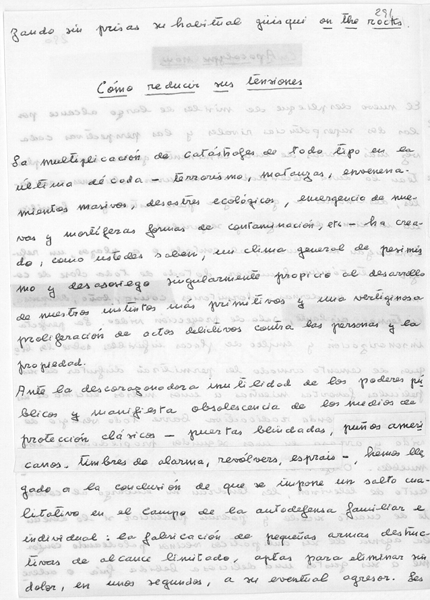 291
zando sin prisas su habitual güisqui on the rocks.
Cómo reducir sus tensiones
La multiplicación de catástrofes de todo tipo en la
última década - terrorismo, matanzas, envenena-
mientos masivos, desastres ecológicos, emergencia de nue-
vas y mortíferas formas de contaminación, etc - ha crea-
do, como ustedes saben, un clima general de pesimis
mo y desasosiego singularmente propicio al desarrollo
de nuestros instintos más primitivos y una vertiginosa
proliferación de actos delictivos contra las personas y la
propiedad.
Ante la descorazonadora inutilidad de los poderes pú
blicos y manifiesta obsolescencia de los medios de
protección clásicos - puertas blindadas, puños ameri
canos, timbres de alarma, revólvers, esprais -, hemos lle
gado a la conclusión de que se impone un salto cua-
litativo en el campo de la autodefensa familiar e
individual: la fabricación de pequeñas armas destruc-
tivas de alcance limitado, aptas para eliminar sin
dolor, en unos segundos, a su eventual agresor. Les